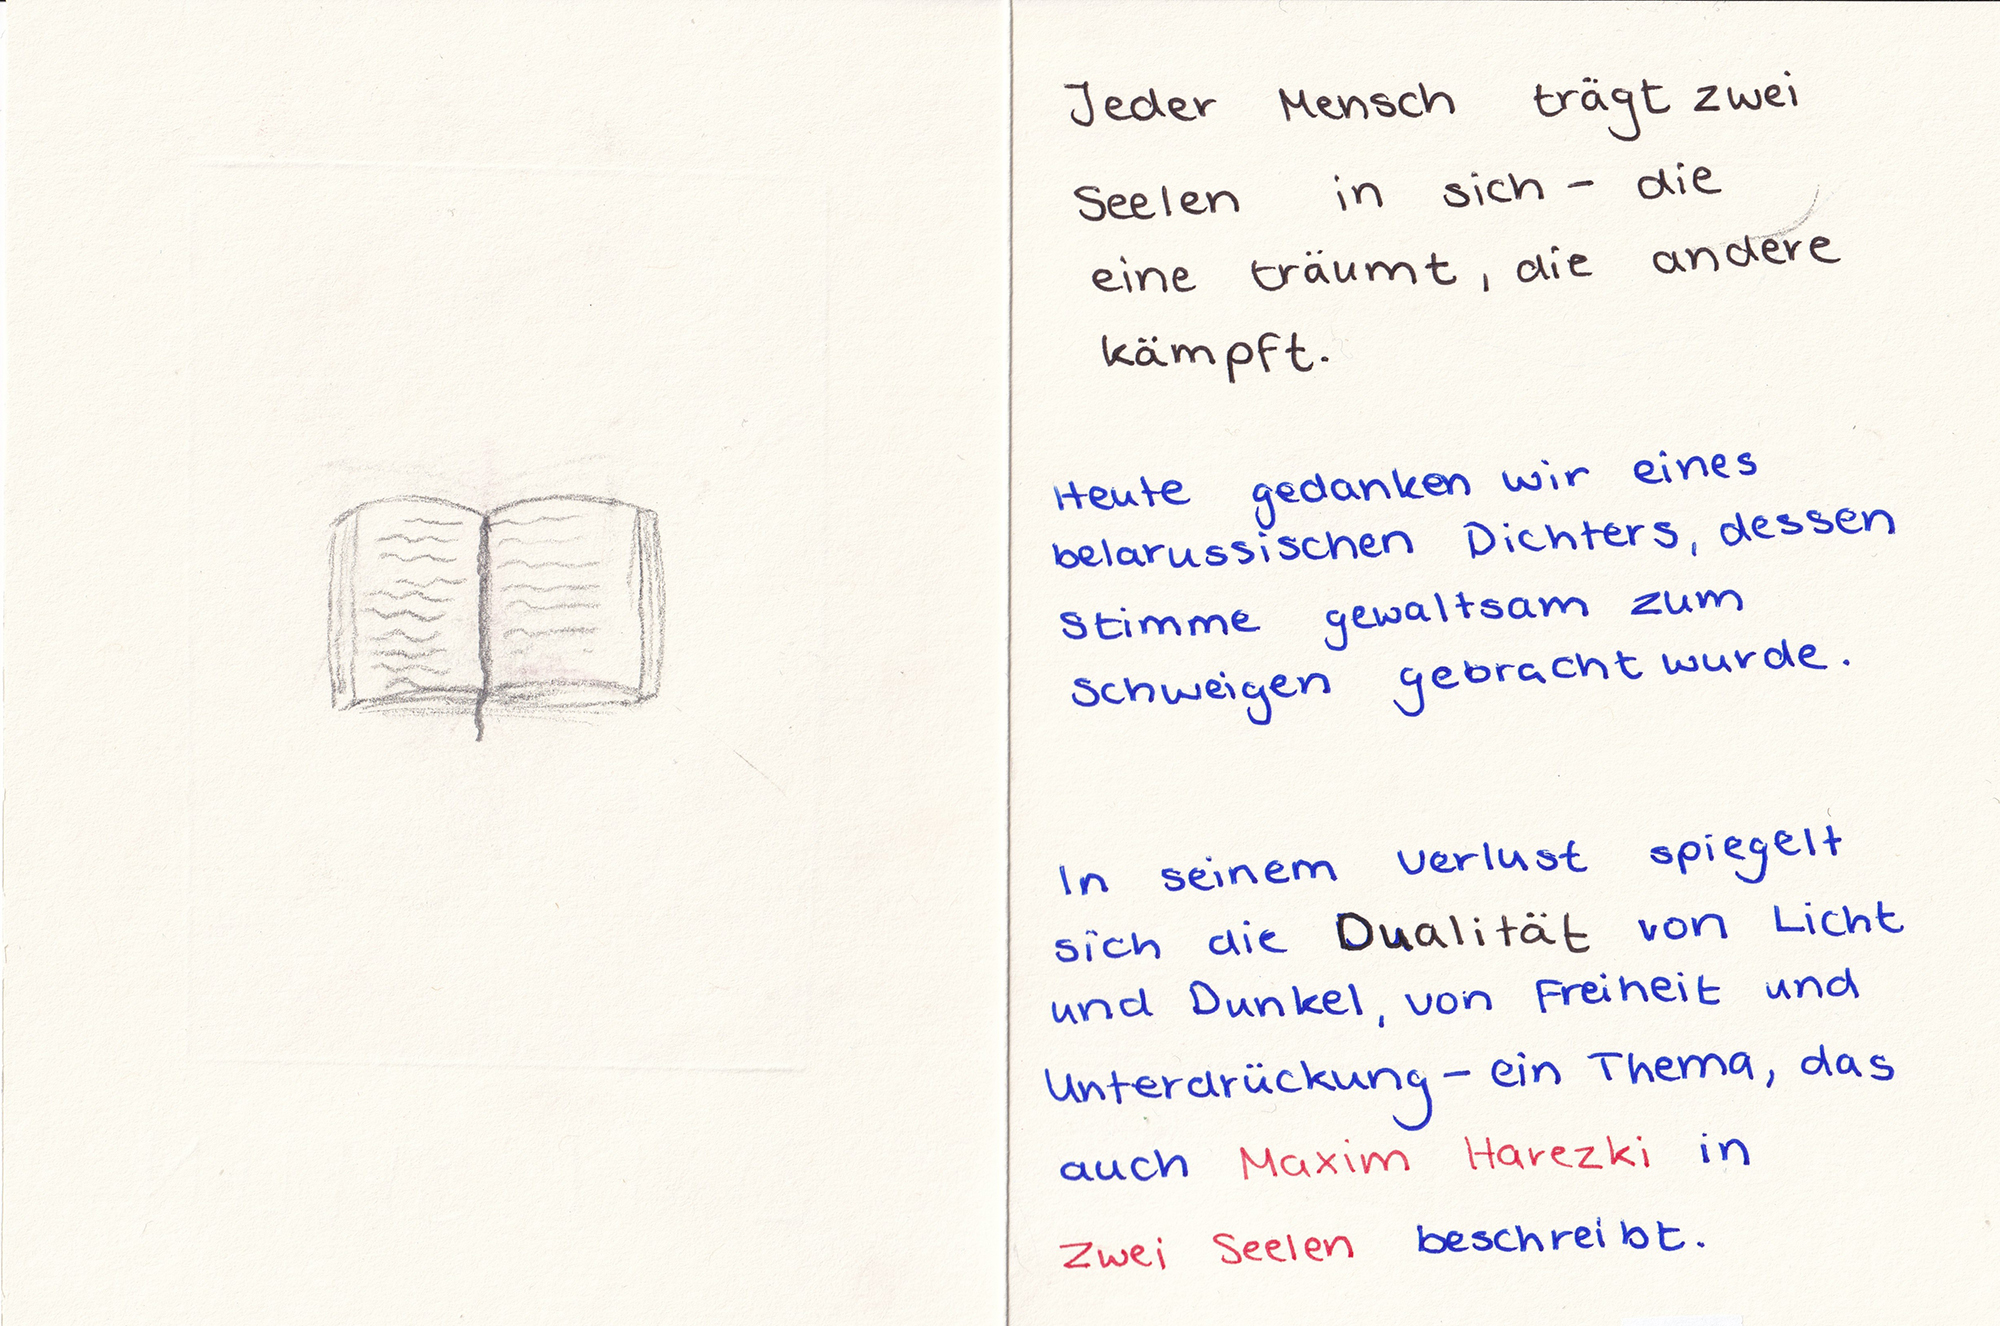 Jeder Mensch trägt zwei
Seelen in sich - die
eine träumt, die andere
kämpft.
Heute gedanken wir eines
belarussischen Dichters, dessen
Stimme gewaltsam zum
Schweigen gebracht wurde.
In seinem Verlust spiegelt
sich die Dualität von Licht
und Dunkel, von Freiheit und
Unterdrückung - ein Thema, das
auch Maxim Harezki in
Zwei Seelen beschreibt.